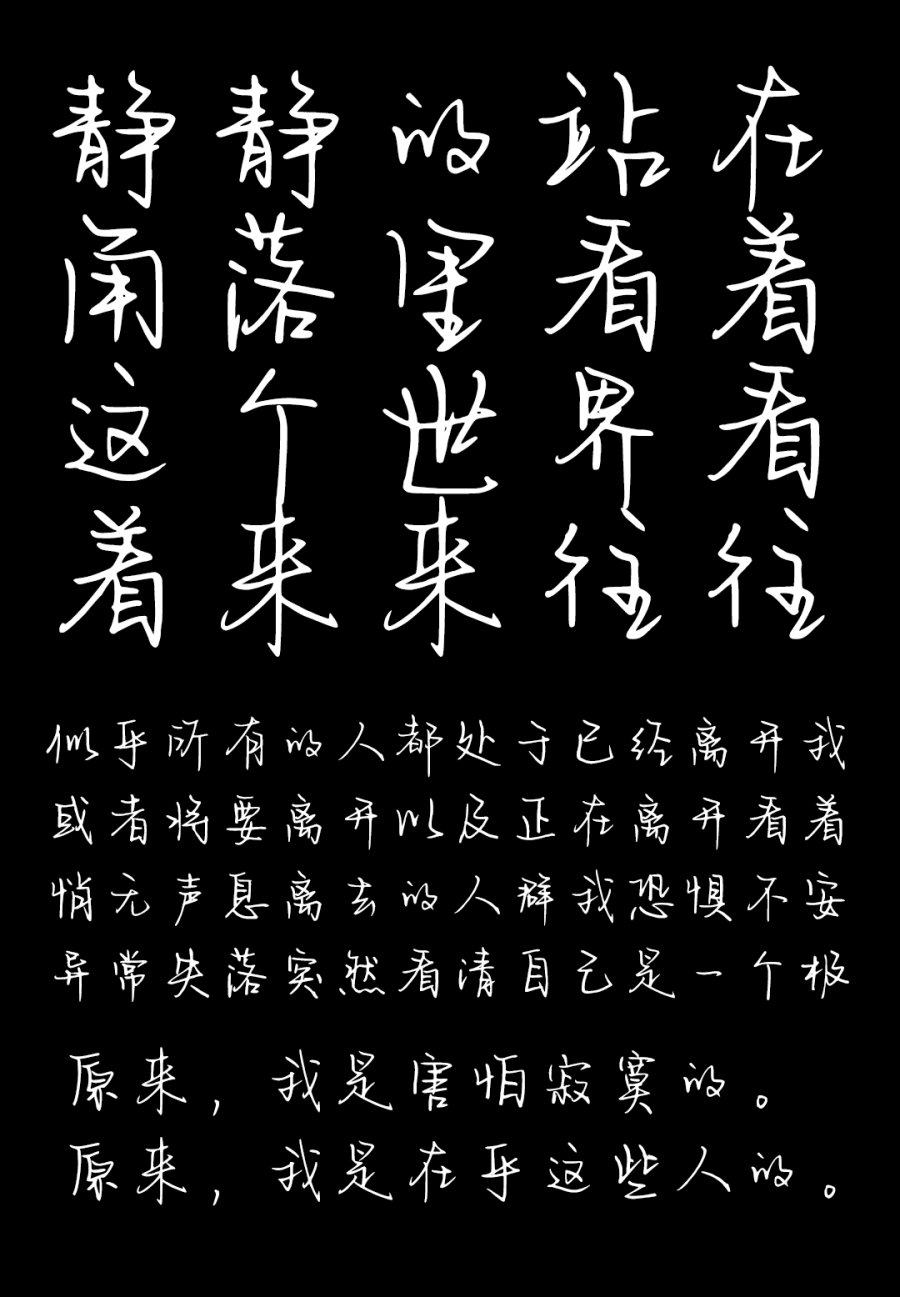 静静的站在
角落里看着
这个世界看
着来来往往
似乎所有的人都处于已经离开我
或者将要离开以及正在离开看着
悄无声息离去的人群我恐惧不安
异常失落突然看清自己是一个极
原来，我是害怕寂寞的。
原来，我是在乎这些人的。